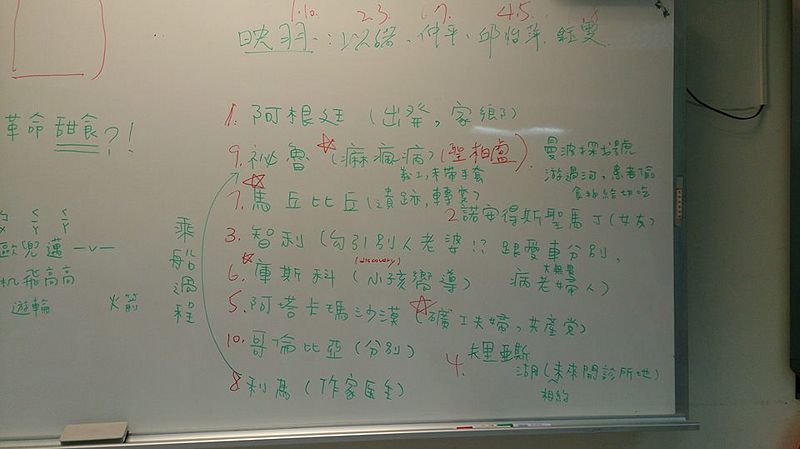 1.10. 23. 17. 4.5.
映羽：以諾、仲平、邱怡萍、鈺雯
革命 甜食？！
1. 阿根廷（出發，家鄉）
9. 祕魯（痲瘋病）（聖柏盧）
義工，未帶手套
曼波探戈號
游過河，患者偷
食物給切吃
7. 馬丘比丘（遺跡，轉變）
2. 諾安得斯聖馬丁（女友）
3. 智利（勾引別人老婆！？跟愛車分別，
病老婦人）
(discovery)
6. 庫斯科（小孩嚮導）
5. 阿塔卡瑪沙漠（礦工夫婦，共產党）
10. 哥倫比亞（分別）
4. 卡里亞斯
湖（未來開診所地）
相約
8 利馬（作家医生）
乘船過程
歐兒邁
机飛高高
遊輪
火箭